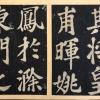 其將皇
甫暉姚
鳳於滁
東門之